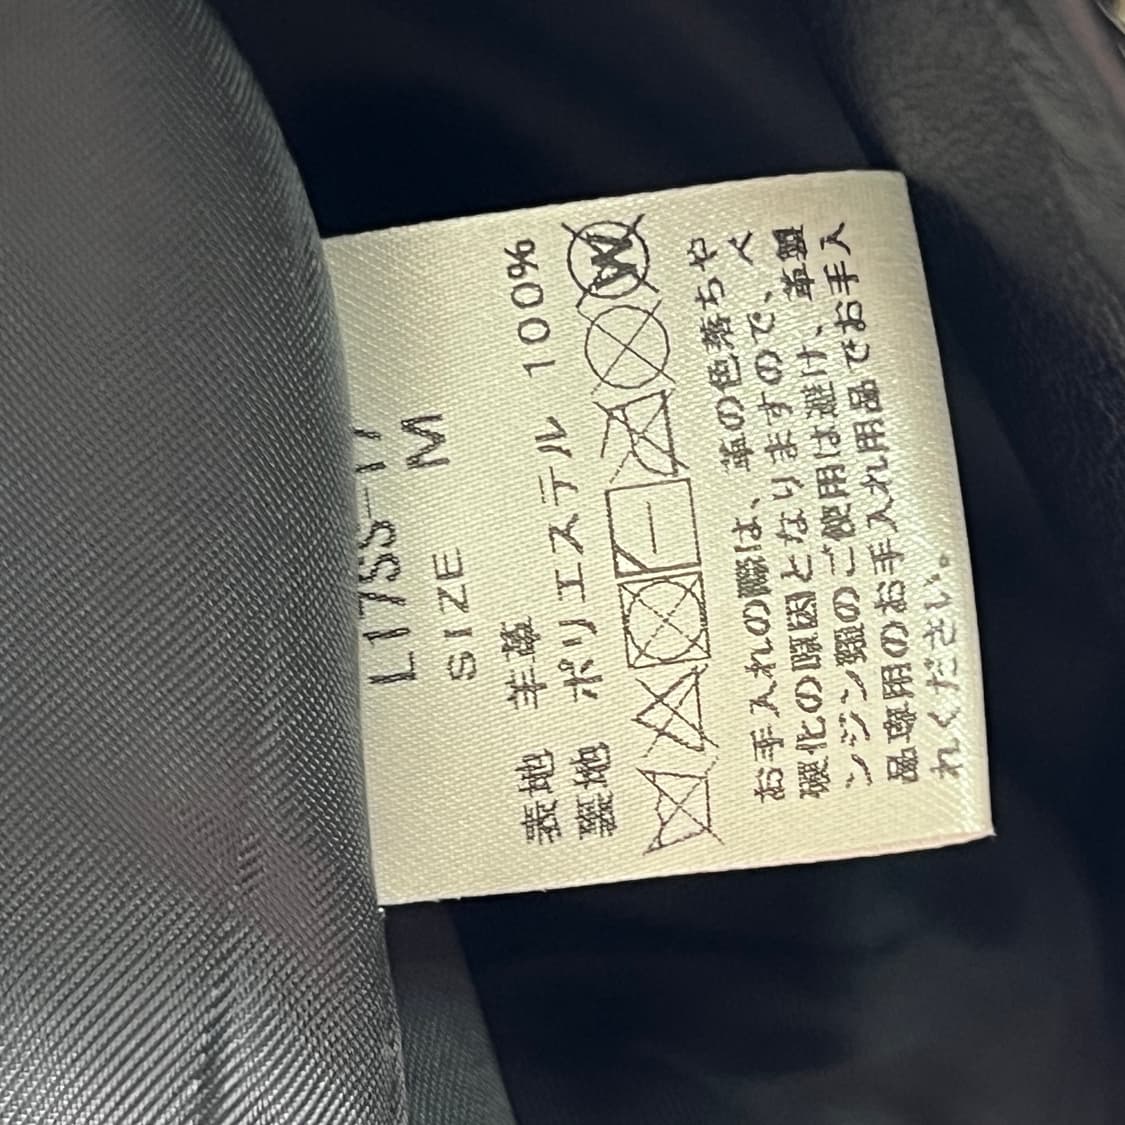 L17SS-17
SIZE M
表地 羊革
裏地 ポリエステル 100%
お手入れの際は、革の色落ちや
硬化の原因となりますので、ベ
ンジン類のご使用は避け、革製
品専用のお手入れ用品でお手入
れください。